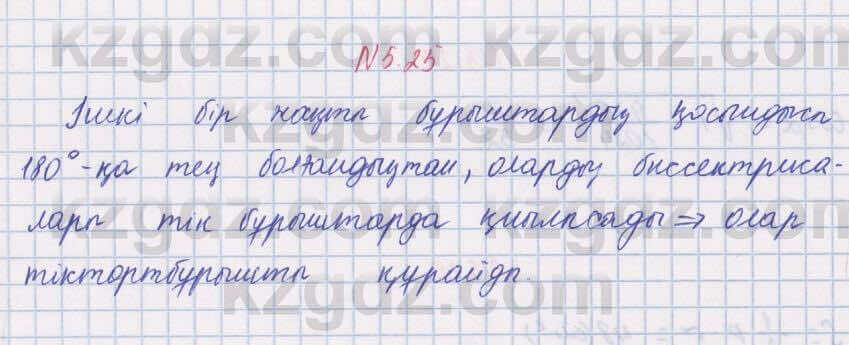 N 5.25
Ішкі бір жақты бұрыштардың қосындысы
180°-қа тең болғандықтан, олардың биссектриса-
лары тік бұрыштарда қиылысады => олар
тіктөртбұрышты құрайды.
kzgdz.com